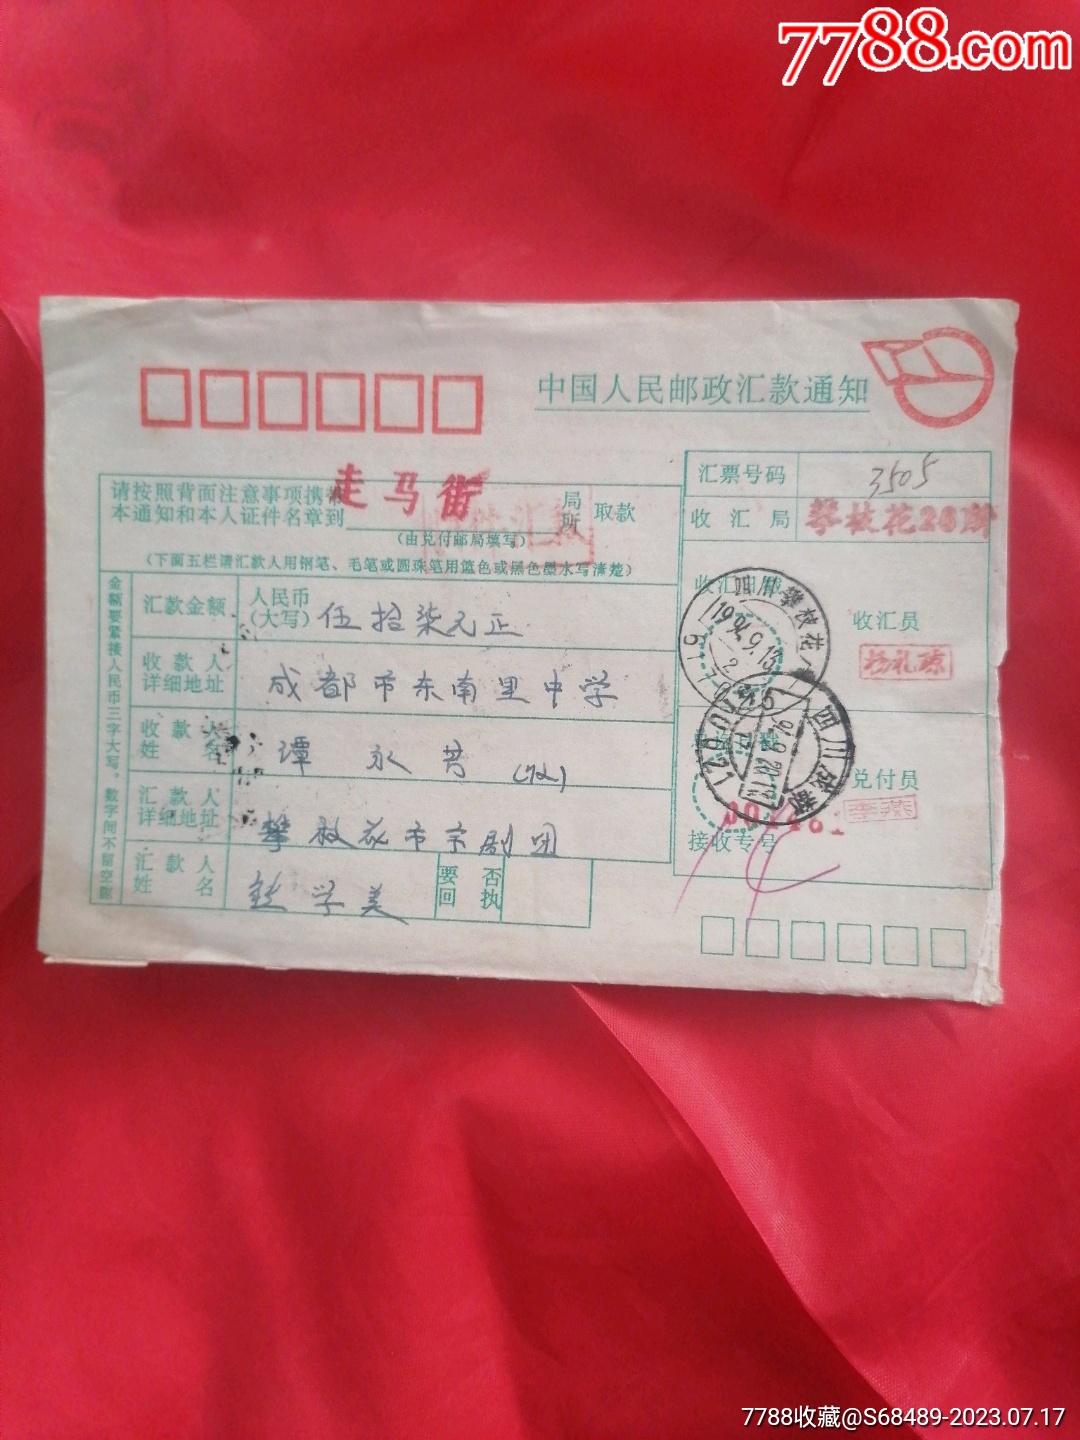 7788.com
中国人民邮政汇款通知
请按照背面注意事项携带
本通知和本人证件名章到
走马街
局
所
取款
(由兑付邮局填写)
(下面五栏请汇款人用钢笔、毛笔或圆珠笔用蓝色或黑色墨水写清楚)
金额要紧接人民币三字大写。数字间不留空隙
汇款金额
人民币
(大写)
伍拾柒元正
收款人
详细地址
成都市东南里中学
收款人
姓名
谭永芳
汇款人
详细地址
攀枝花市京剧团
汇款人
姓名
学美
要否
回执
汇票号码
3505
收汇局
攀枝花26所
收汇日戳
四川攀枝花
1994.9.13
收汇员
四川成都
兑付员
接收专号
7788收藏@S68489-2023.07.17